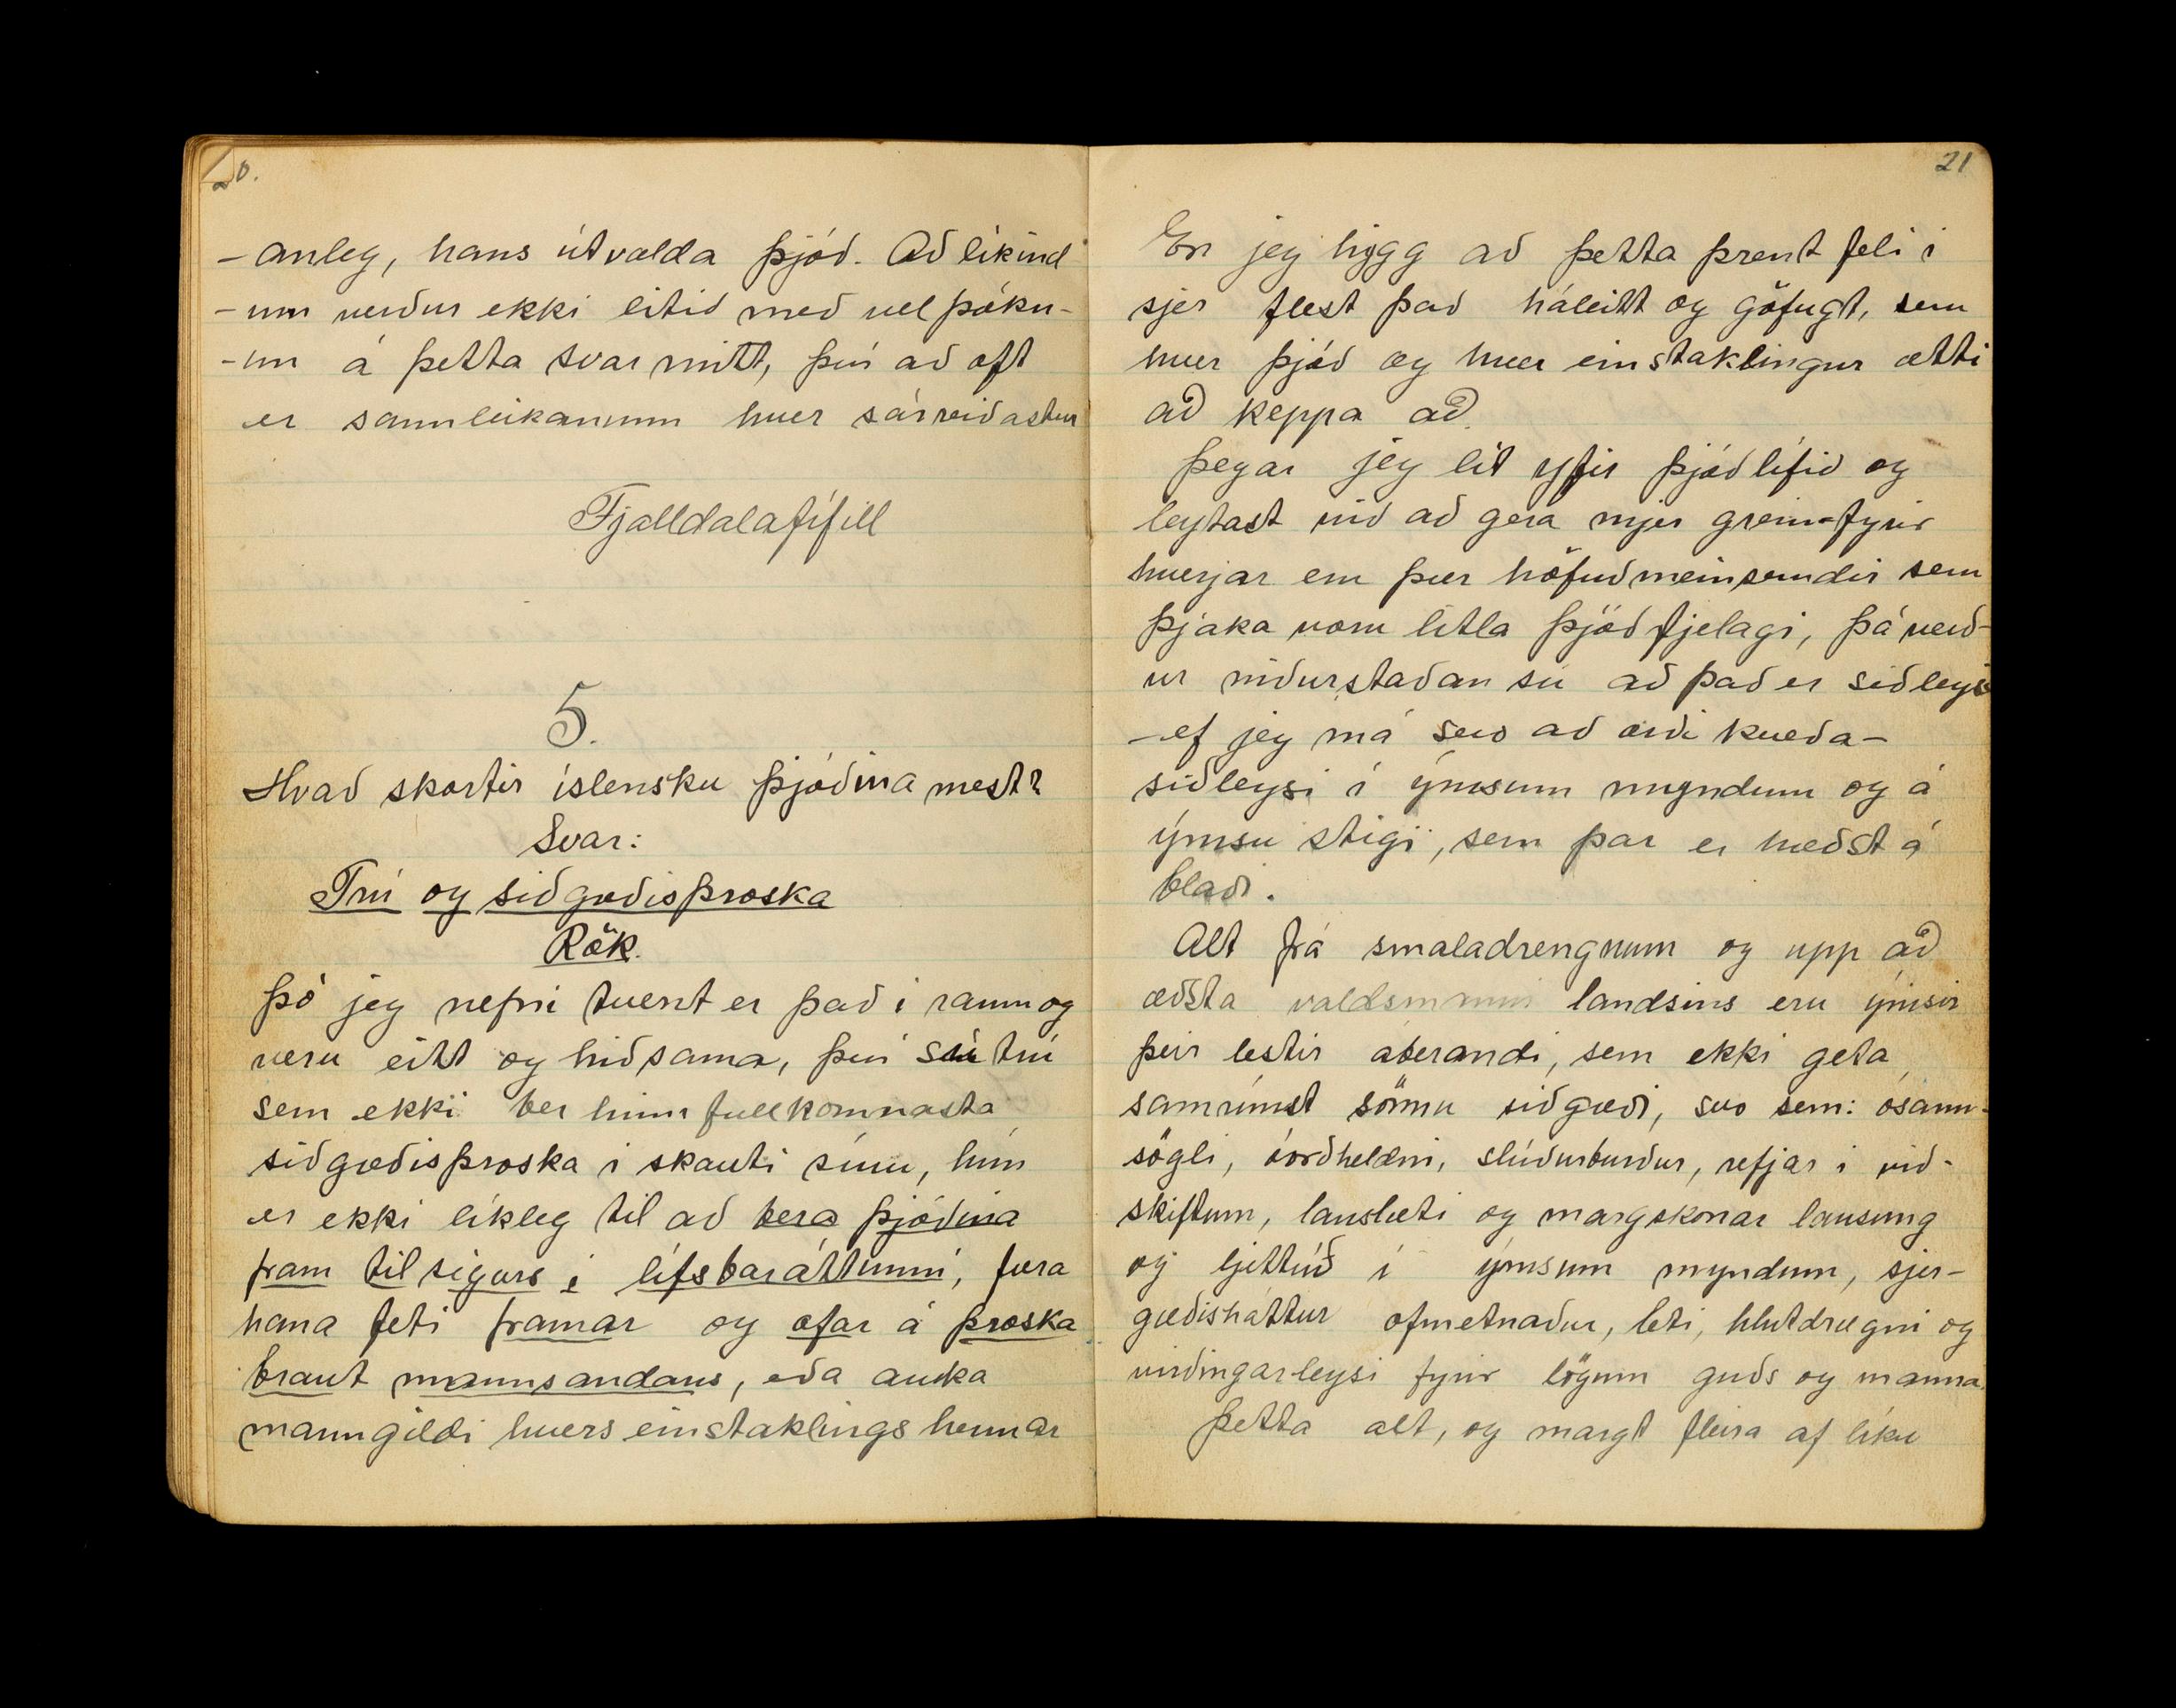 20.
-anleg, hans útvalda þjóð. Að líkind
-um verður ekki litið með velþókn-
-un á þetta svar mitt, því að oft
er sannleikanum hver sárreiðastur
Fjalldalafífill
5.
Hvað skortir íslensku þjóðina mest?
Svar:
Trú og siðgæðisþroska
Rök.
Þó jeg nefni tvent er það i raun og
veru eitt og hið sama, því sú trú
sem ekki ber hinn fullkomnasta
siðgæðisþroska i skauti sínu, hún
er ekki líkleg til að bera þjóðina
fram til sigurs i lífsbaráttunni, færa
hana feti framar og ofar á þroska
braut mannsandans, eða auka
manngildi hvers einstaklings hennar
21
En jeg hygg að þetta þrent feli i
sjer flest það háleitt og göfugt, sem
hver þjóð og hver einstaklingur ætti
að keppa að.
Þegar jeg lít yfir þjóðlífið og
leytast við að gera mjer grein fyrir
hverjar eru þær höfuðmeinsemdir sem
þjaka voru litla þjóðfjelagi, þá verð-
ur niðurstaðan sú að það er siðleysi
-ef jeg má svo að orði kveða-
siðleysi í ýmsum myndum og á
ýmsu stigi, sem þar er hæðst á
blaði.
Alt frá smaladrengnum og upp að
æðsta valdsmanni landsins eru ýmsir
þeir lestir áberandi, sem ekki geta
samrímst sönnu siðgæði, svo sem: ósann-
sögli, óorðheldni, slúðurburður, refjar i við-
skiftum, lauslæti og margskonar lausung
og ljettúð í ýmsum myndum, sjer-
gæðisháttur ofmetnaður, leti, hlutdrægni og
virðingarleysi fyrir lögum guðs og manna.
Þetta alt, og margt fleira af líku